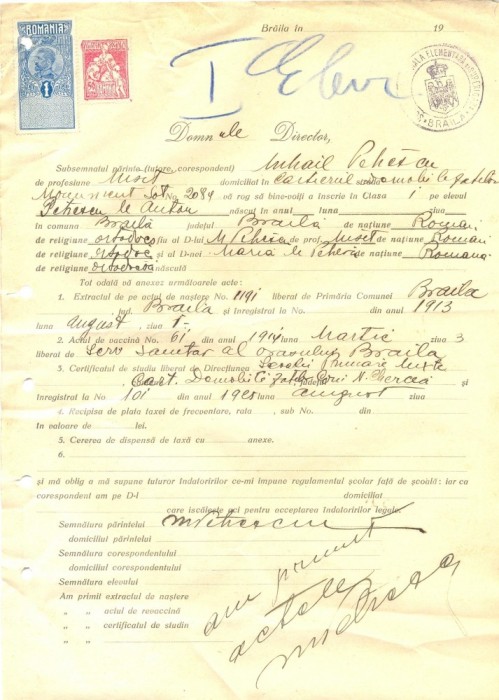 Brăila in 19
ROMANIA
1
I Elevi
ȘCOALA ELEMENTARĂ
BRĂILA
Domnule Director,
Subsemnatul părinte (tutore, corespondent) Mihail Petrescu
de profesiune domiciliat în Cartierul strada
No. 2089 vă rog să bine-voiți a înscrie în Clasa I pe elevul
Petrescu Anton născut în anul luna ziua
în comuna Brăila județul Brăila de națiune Român
de religiune ortodox fiu al D-lui M. de prof. de națiune Român
de religiune ortodox și al D-nei Maria de națiune Română
de religiune ortodoxă născută
Tot odată vă anexez următoarele acte:
1. Extractul de pe actul de naștere No. 1191 liberat de Primăria Comunei Braila
jud. Braila și înregistrat la No. din anul 1913
luna August ziua 1
2. Actul de vaccină No. 61 din anul 1914 luna Martie ziua 3
liberat de Serv Sanitar al orașului Braila
3. Certificatul de studii liberat de Direcțiunea Școlii primare mixte
Cart. județul
înregistrat la No 101 din anul 1925 luna August ziua
4. Recipisa de plata taxei de frecuentare, rata sub No. din
în valoare de lei.
5. Cererea de dispensă de taxă cu anexe.
6.
și mă oblig a mă supune tuturor îndatoririlor ce-mi impune regulamentul școlar față de școală: iar ca
corespondent am pe D-l domiciliat
care iscălește aci pentru acceptarea îndatoririlor legale.
Semnătura părintelui
domiciliul părintelui
Semnătura corespondentului
domiciliul corespondentului
Semnătura elevului
Am primit extractul de naștere
„ „ actul de revaccină
„ „ certificatul de studiu
am primit
actele